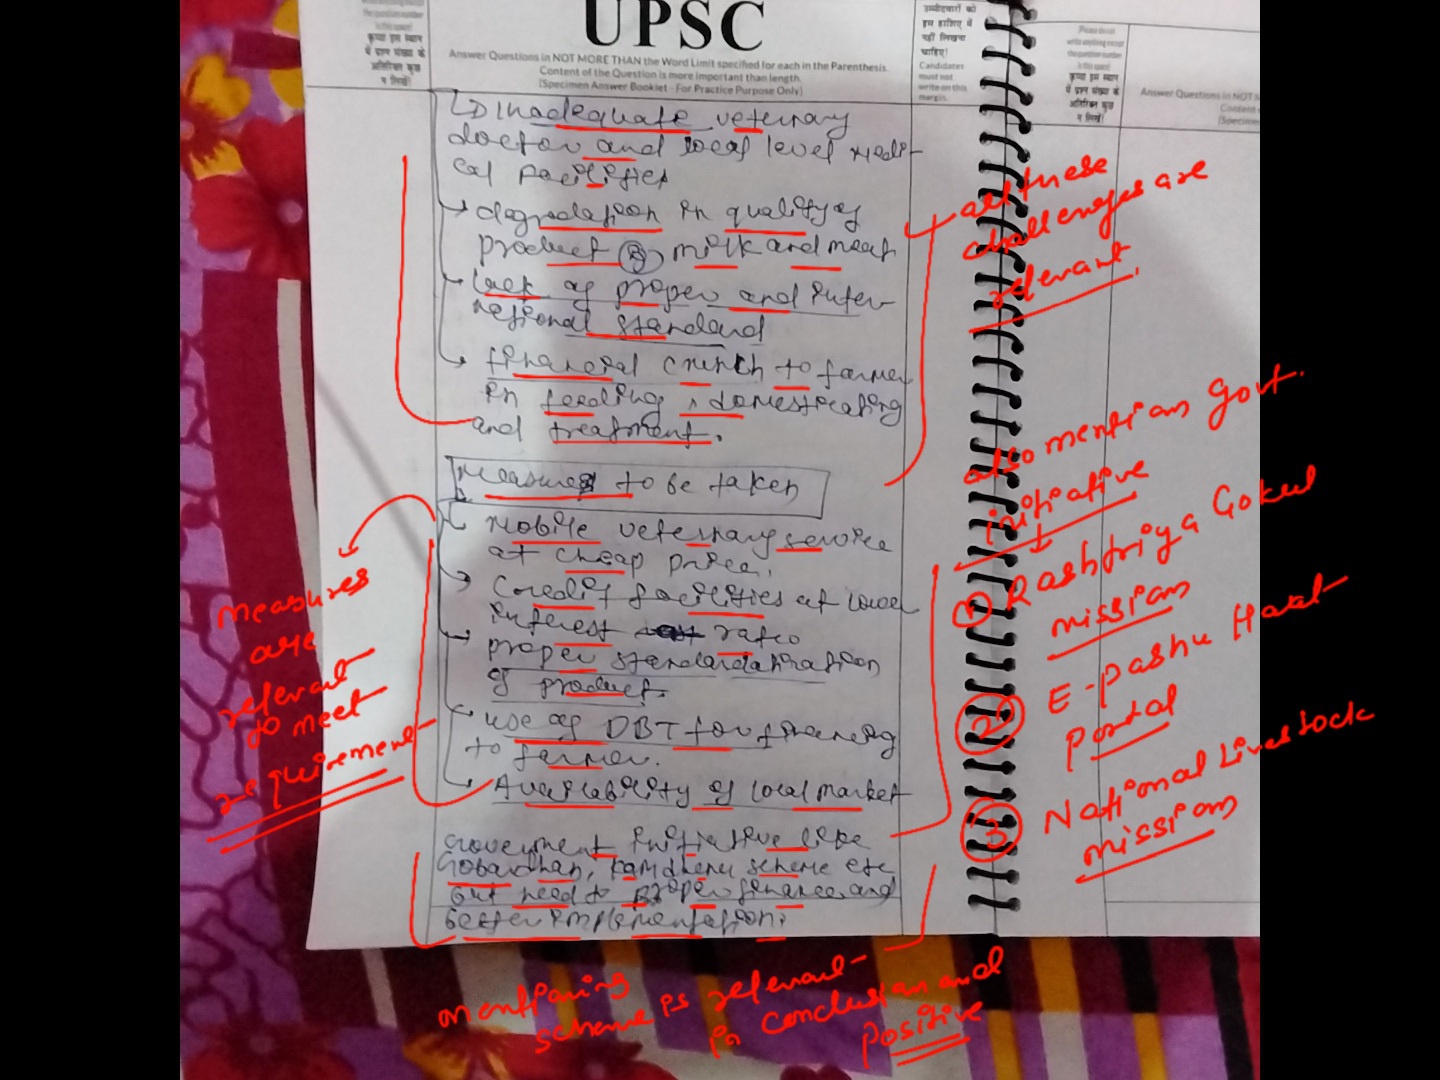 UPSC
Answer Questions in NOT MORE THAN the Word Limit specified for each in the Parenthesis.
Content of the Question is more important than length.
(Specimen Answer Booklet - For Practice Purpose Only)
कृपया इस स्थान
में प्रश्न संख्या के
अतिरिक्त कुछ
न लिखें।
उम्मीदवारों को
इस हाशिए में
नहीं लिखना
चाहिए।
Candidates
must not
write on this
margin.
कृपया इस स्थान
में प्रश्न संख्या के
अतिरिक्त कुछ
न लिखें।
Answer Questions in NOT
Inadequate veternary
doctor and local level medi-
cal facilities
degradation in quality of
product milk and meat
lack of proper and inter
national standard
financial crunch to farmer
in feeding, domesticating
and treatment.
Measures to be taken
Mobile veternary service
at cheap price.
Credit facilities at lower
interest ratio
proper standardatization
of product.
use of DBT for financing
to farmer.
Availability of local market
Government initiative like
Gobardhan, Kamdhenu scheme etc
but need to proper finance and
better implementation.
all these
challenges are
relevant.
also mention Govt.
initiative
1 Rashtriya Gokul
mission
2 E-pashu Haat
Portal
3 National Livestock
mission
measures
are
relevant
to meet
requirement
mentioning
scheme is relevant
in conclusion and
positive